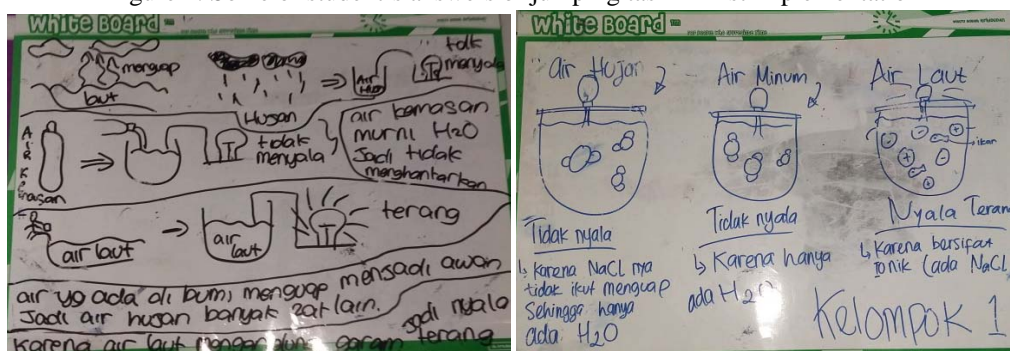 White Board
menguap
laut
Hujan
Air
tdk
menyala
AIR KEMASAN
tidak
menyala
air kemasan
murni H2O
Jadi tidak
menghantarkan
air laut
air
laut
terang
air yg ada di bumi menguap menjadi awan
Jadi air hujan banyak zat lain.
Karena air laut mengandung garam
jadi nyala
terang
White Board
air Hujan
Air Minum
Air Laut
ikan
Tidak nyala
↳ Karena NaCl nya
tidak ikut menguap
Sehingga hanya
ada H2O
Tidak nyala
↳ Karena hanya
ada H2O
Nyala Teran
↳ Karena bersifat
ionik (ada NaCl
Kelompok 1